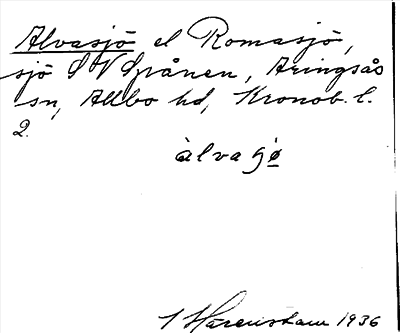 Alvasjö el Romasjö,
sjö S V Spånen, Aringsås
sn, Allbo hd, Kronob. l.
2.
àlvaɧø
I Harenstam 1936